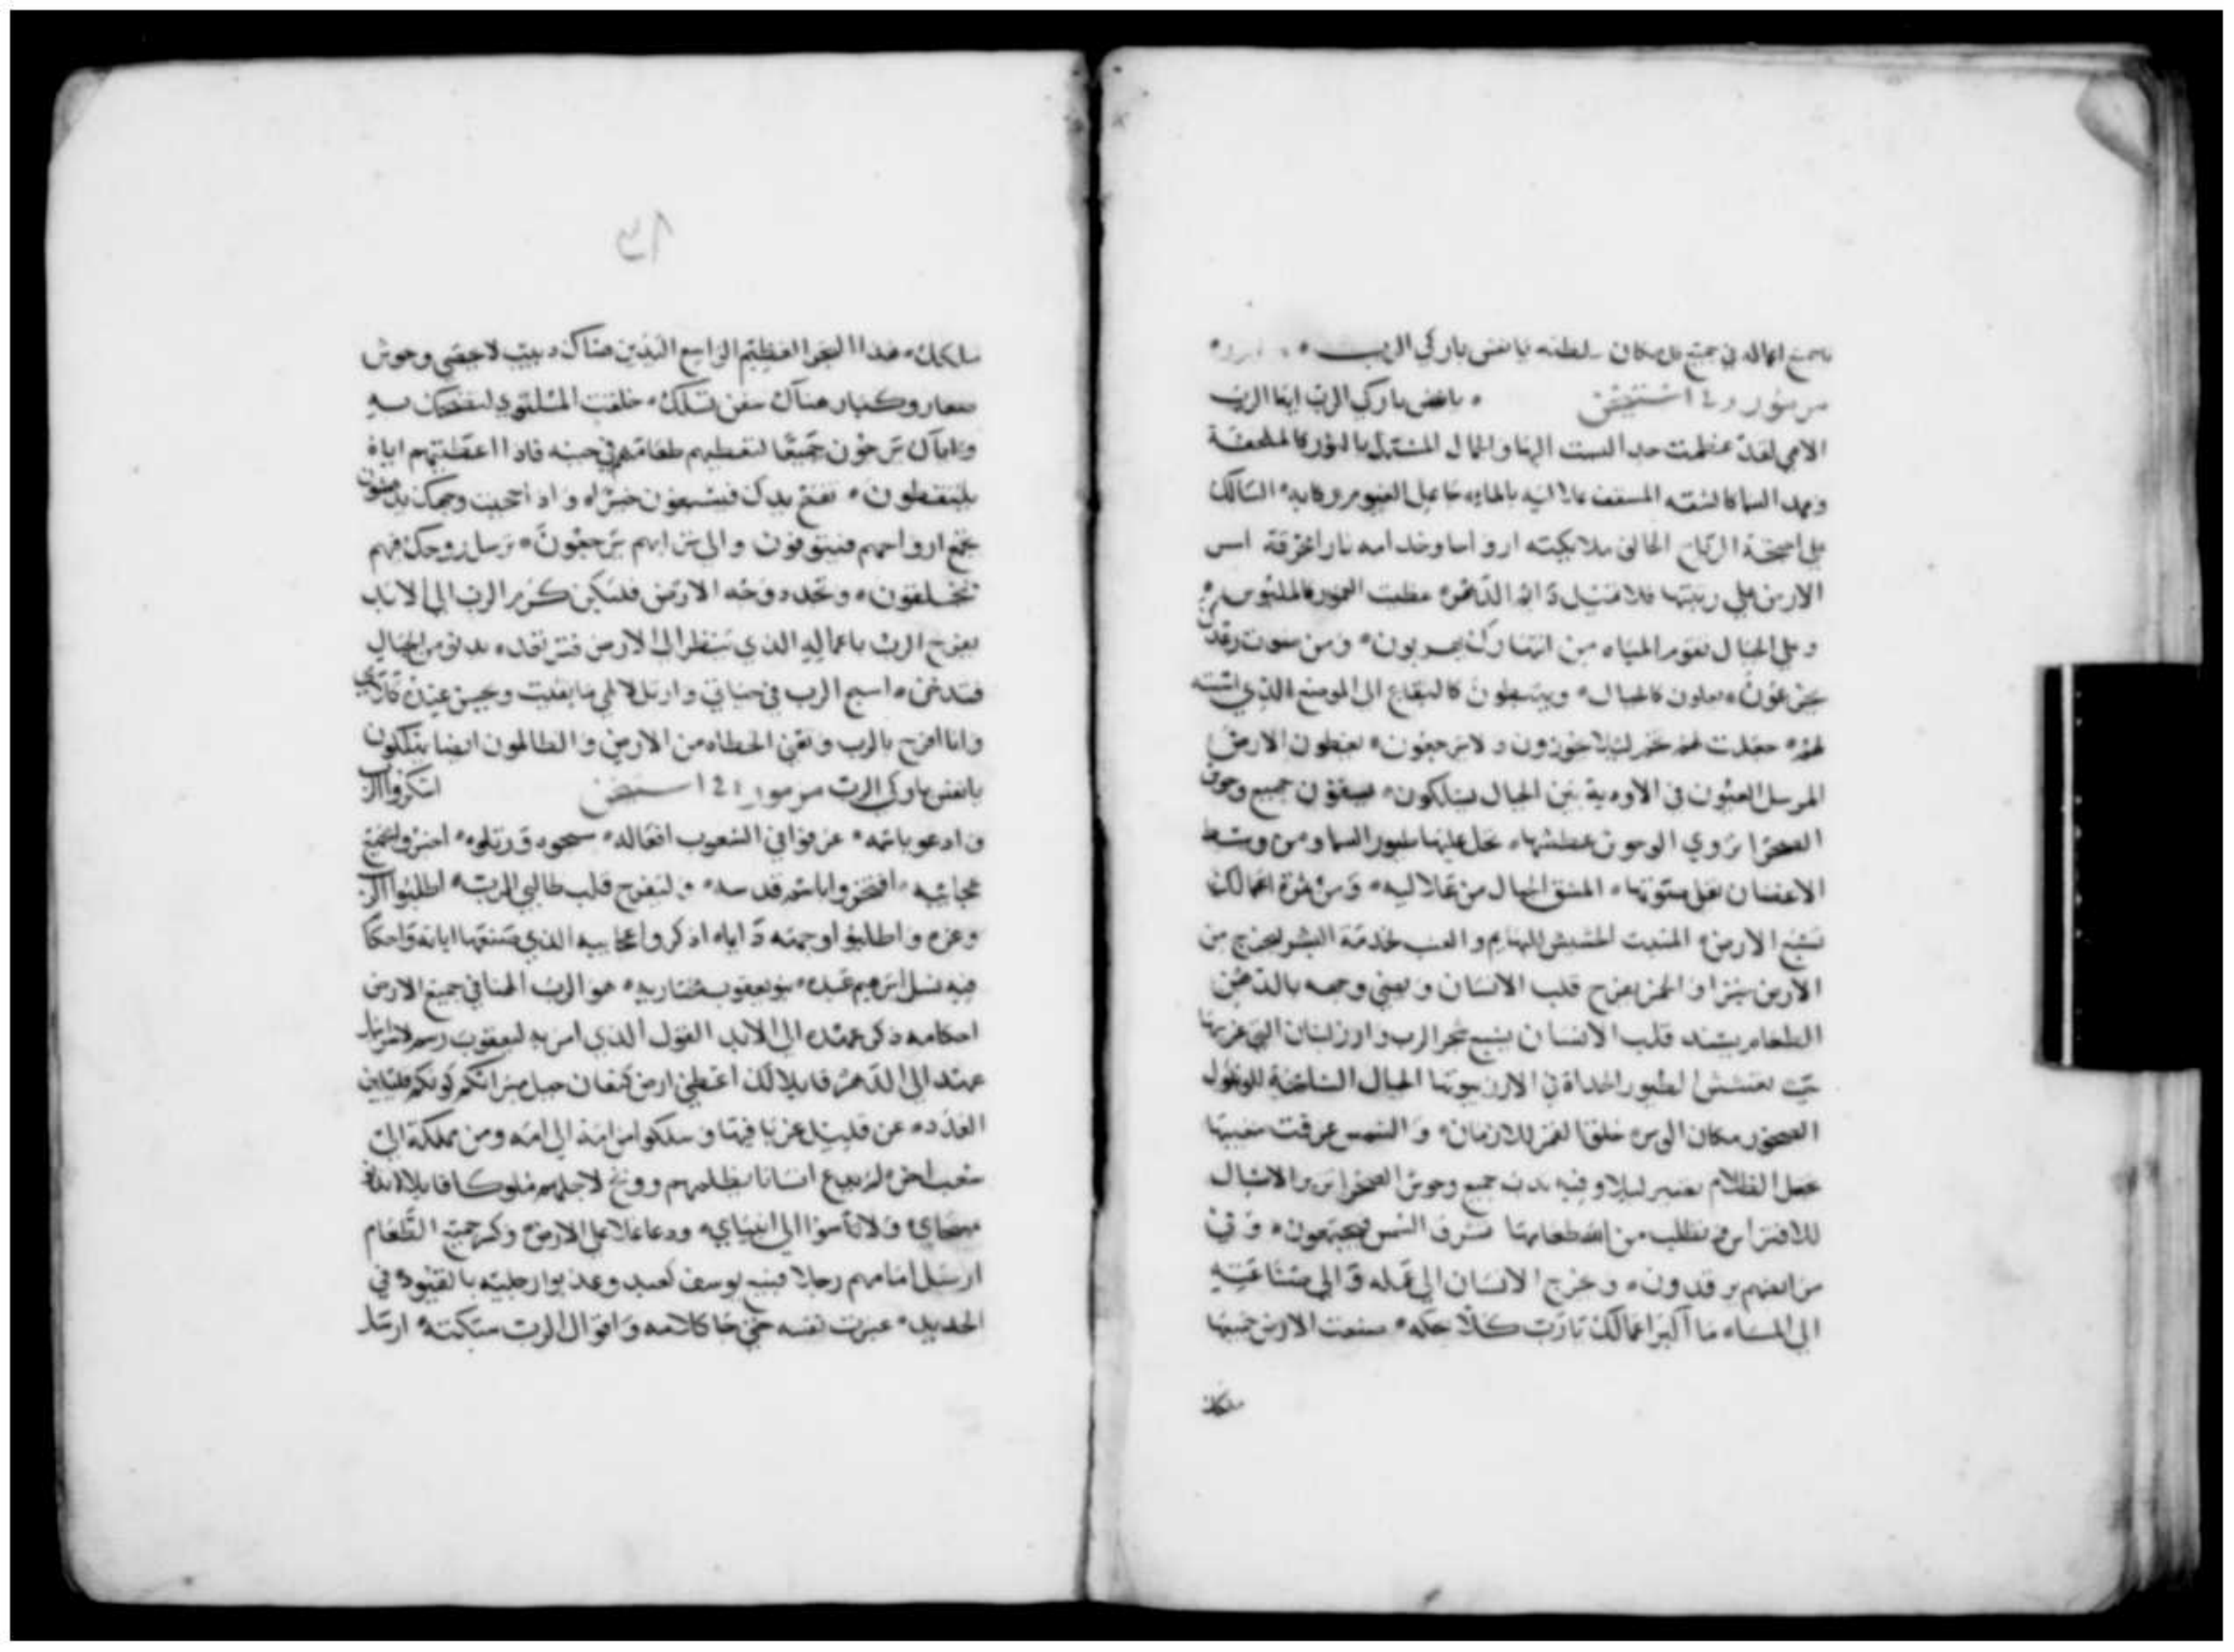 يا جميع اعماله في جميع كل مكان سلطته يا نفس باركي الرب
مزمور استفتحن يا نفس باركي الرب ايها الرب
الاهي لقد عظمت جدا لبست البها والجمال المشتمل بالنور كالملحفة
ومهد السما كالشقه المسقف علاليه بالمياه جاعل الغيوم مركابه السالك
على اجنحة الرياح الخالق ملايكيته ارواحا وخدامه نارا محرقة اسس
الارض على ربتها فلا تميل الى الدهر عطيت الغمور كالملبوس
وعلى الجبال تقوم المياه من انتهارك يهربون ومن صوت رعدك
يجزعون يعلون كالجبال ويهبطون كالبقاع الى الموضع الذي اثبته
لهم جعلت لهم لا يجوزون ولا يرجعون يغطون الارض
المرسل العيون في الاودية بين الجبال يسلكون يسقون جميع وحوش
الصحرا تروي الوحوش عطشها تحل عليها طيور السما ومن وسط
الاغصان تعل صوتها المسق الجبال من علاليه ومن ثمرة اعمالك
تشبع الارض المنبت الحشيش للبهايم والعشب لخدمة البشر ليخرج من
الارض خبزا والخمر يفرح قلب الانسان وجهه بالدهن
الطعام يشدد قلب الانسان يشبع شجر الرب وارز لبنان التي غرسها
حيث تعشش الطيور الحداة في الارز بيوتها الجبال الشامخة للوعول
الصخور مكان خلق القمر للازمان والشمس عرفت مغيبها
جعل الظلام يصير ليلا وفيه تدب جميع وحوش الصحرا والاشبال
للافتراس وتطلب من الله طعامها تشرق الشمس فيجتمعون وفي
مرابضهم يرقدون يخرج الانسان الى عمله والى صناعته
الى المساء ما اكبر اعمالك يا رب كلا بحكه صنعت الارض جميعها
ملكك
ملكك هذا البحر العظيم الواسع اليدين هناك دبيب لا يحصى وحوش
صغار وكبار هناك سفن تسلك خلقت ليضحك به
واياك يرجون جميعا لتعطيهم طعامهم في حينه فاذا اعطيتهم اياه
يلتقطون تفتح يدك فيشبعون خيرا واذا احجبت وجهك يدهشون
تجمع ارواحهم فيتوفون والى ترابهم يرجعون ترسل روحك فهم
يخلقون وتجدد وجه الارض فليكن كرم الرب الى الابد
يفرح الرب باعماله الذي ينظر الى الارض فترتعد يدنو من الجبال
فتدخن اسبح الرب في حياتي وارتل لالهي ما بقيت ويحسن عنده
وانا افرح بالرب وتفنى الخطاه من الارض والظالمون ايضا يهلكون
يا نفس باركي الرب مزمور استفتحن اشكروا الرب
وادعو باسمه عرفوا في الشعوب افعاله سبحوه ورتلوه اخبروا بجميع
عجايبه افتخروا باسم قدسه وليفرح قلب طالبي الرب اطلبوا الرب
وعزه واطلبوا وجهه واياه اذكروا عجايبه الذي صنعها اياته واحكام
فيه نسل ابرهيم عبده بنو يعقوب مختاريه هو الرب الهنا في جميع الارض
احكامه ذكر عهده الى الابد القول الذي امر به ليعقوب رسم لاسرايل
عهد الى الدهر قايلا لك اعطي ارض كنعان حبل ميراثكم كونكم قليلين
العدد عن قليل غربا فيها وسلكوا من امة الى امه ومن مملكة الى
شعب اخر لم يدع انسانا يظلمهم ووبخ لاجلهم ملوكا قايلا
مسحاي ولا تاسوا الى انبياي ودعا غلا على الارض وكسر جميع الطعام
ارسل امامهم رجلا فبيع يوسف كعبد وعذبوا رجليه بالقيود في
الحديد عبرت نفسه حتى جا كلامه واقوال الرب سبكته ارسل